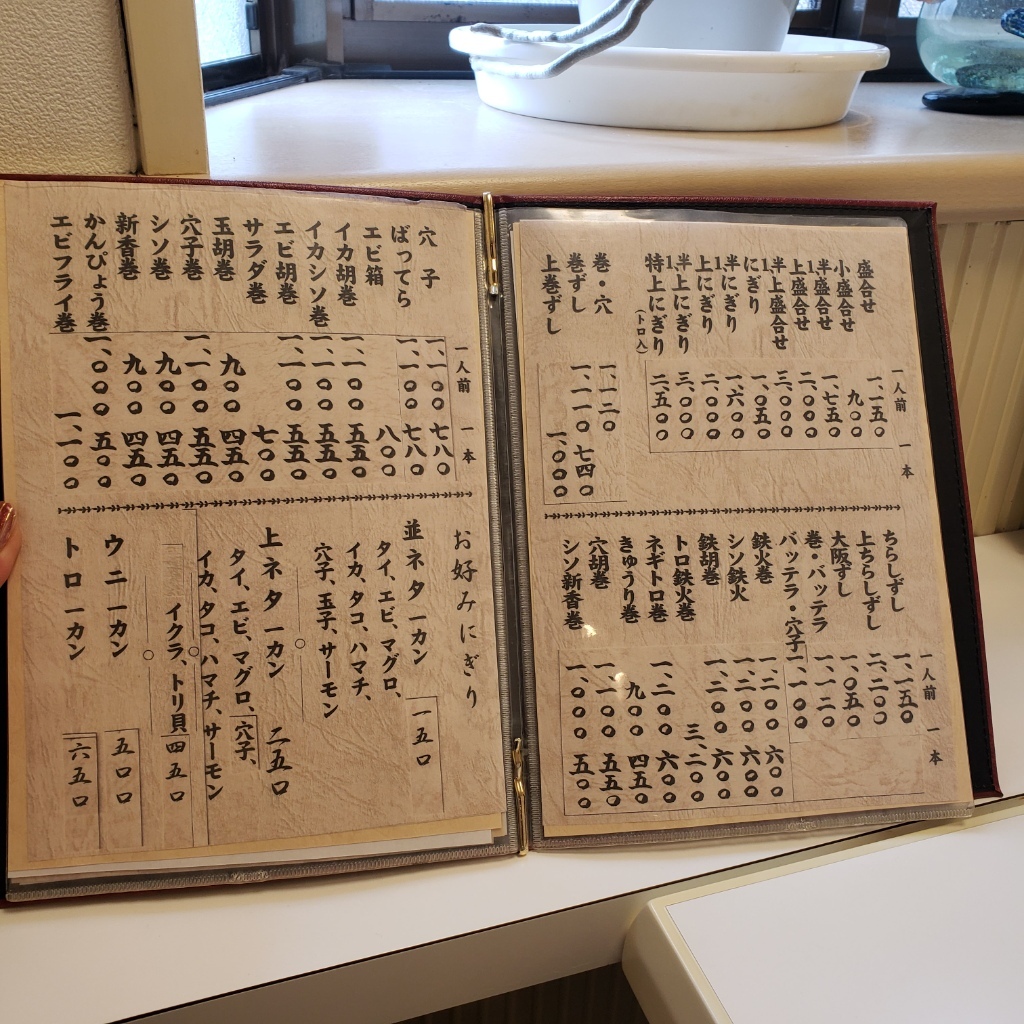 一人前 一本
盛合せ 一、一五〇
小盛合せ 九〇〇
1半盛合せ 一、七五〇
上盛合せ 二、〇〇〇
1半上盛合せ 三、〇〇〇
にぎり 一、〇五〇
1半にぎり 一、六〇〇
上にぎり 二、〇〇〇
1半上にぎり 三、〇〇〇
特上にぎり(トロ入) 二、五〇〇
巻・穴 一、一二〇
巻ずし 一、一一〇 七四〇
上巻ずし 一、〇〇〇
一人前 一本
ちらしずし 一、一五〇
上ちらしずし 二、二〇〇
大阪ずし 一、〇五〇
巻・バッテラ 一、一二〇
バッテラ・穴子 一、一〇〇
鉄火巻 一、二〇〇 六〇〇
シソ鉄火 一、二〇〇 六〇〇
鉄胡巻 一、二〇〇 六〇〇
トロ鉄火巻 三、二〇〇
ネギトロ巻 一、二〇〇 六〇〇
きゅうり巻 九〇〇 四五〇
穴胡巻 一、一〇〇 五五〇
シソ新香巻 一、〇〇〇 五〇〇
一人前 一本
穴子 一、一〇〇 七八〇
ばってら 一、一〇〇 七八〇
エビ箱 八〇〇
イカ胡巻 一、一〇〇 五五〇
イカシソ巻 一、一〇〇 五五〇
エビ胡巻 一、一〇〇 五五〇
サラダ巻 七〇〇
玉胡巻 九〇〇 四五〇
穴子巻 一、一〇〇 五五〇
シソ巻 九〇〇 四五〇
新香巻 九〇〇 四五〇
かんぴょう巻 一、〇〇〇 五〇〇
エビフライ巻 一、一〇〇
お好みにぎり
並ネタ一カン 一五〇
タイ、エビ、マグロ、
イカ、タコ、ハマチ、
穴子、玉子、サーモン
上ネタ一カン 二五〇
タイ、エビ、マグロ、穴子、
イカ、タコ、ハマチ、サーモン
イクラ、トリ貝 四五〇
ウニ一カン 五〇〇
トロ一カン 六五〇